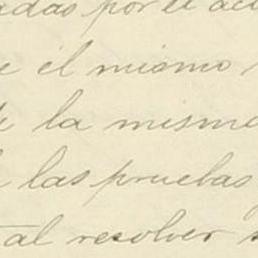 adas por el
e él mismo
la misma
las pruebas
tal resolver